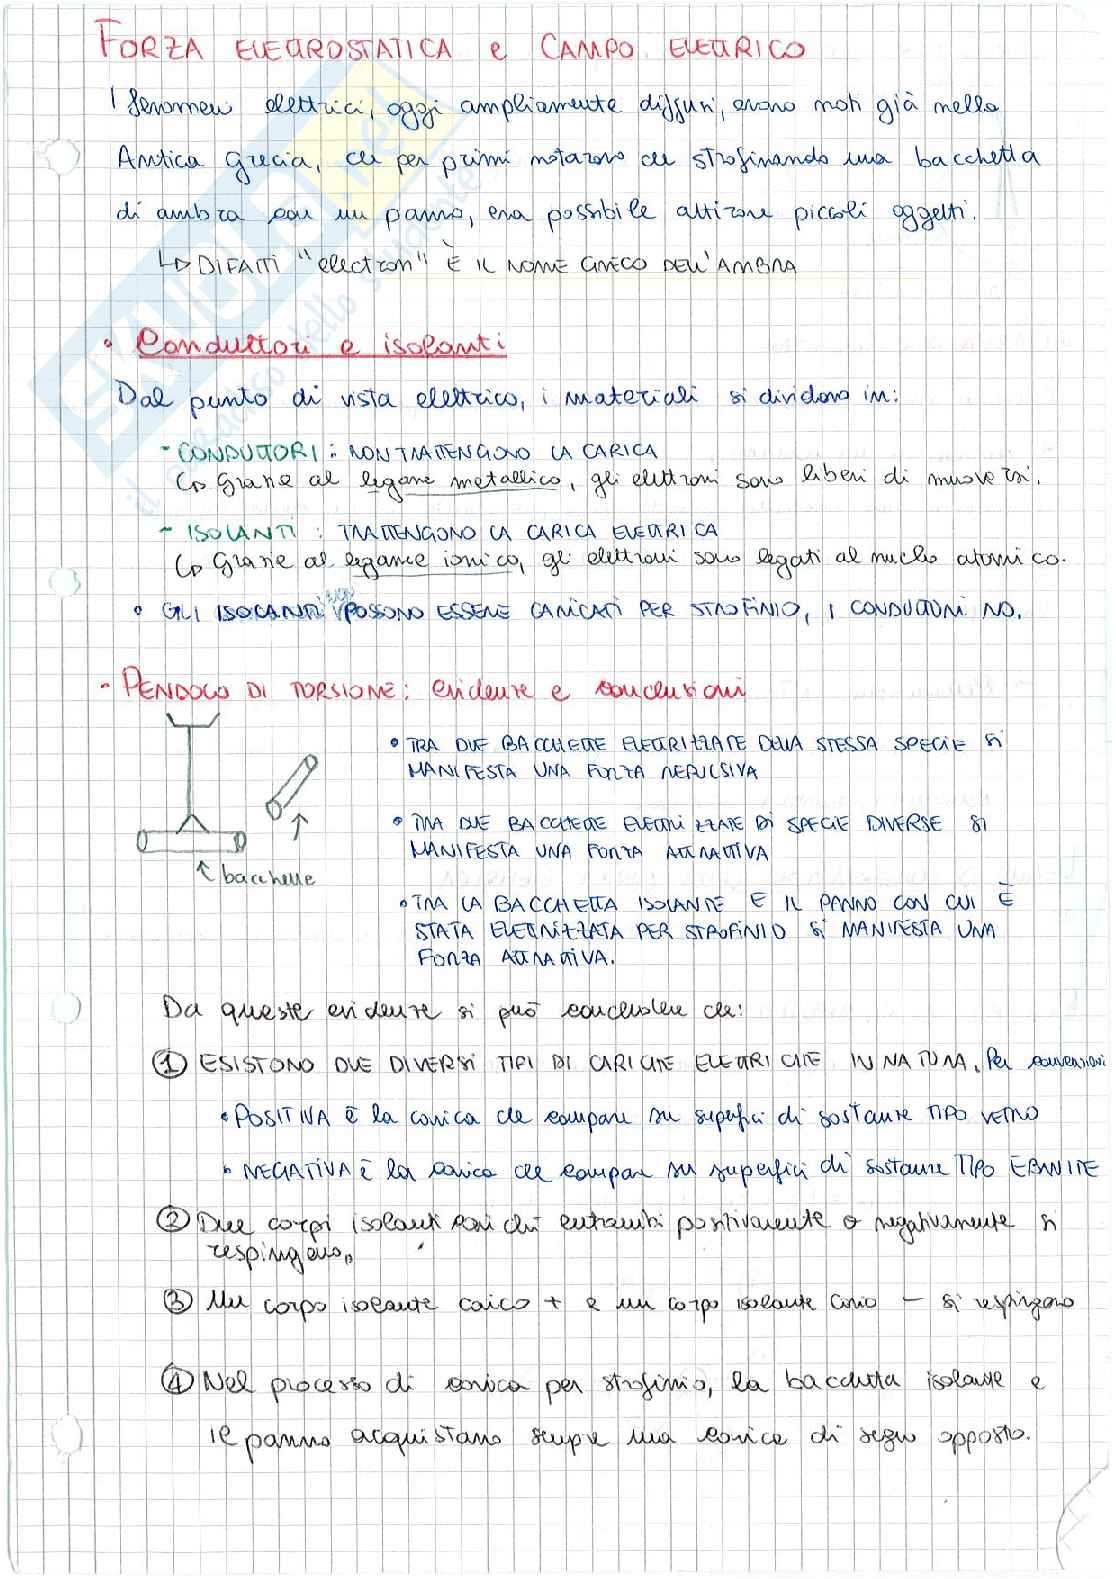 FORZA ELETTROSTATICA e CAMPO ELETTRICO
I fenomeni elettrici, oggi ampiamente diffusi, erano noti già nella
Antica grecia, che per primi notarono che strofinando una bacchetta
di ambra con un panno, era possibile attirare piccoli oggetti.
↳ DIFATTI "electron" È IL NOME GRECO DELL'AMBRA
• Conduttori e isolanti
Dal punto di vista elettrico, i materiali si dividono in:
- CONDUTTORI: NON TRATTENGONO LA CARICA
↳ Grazie al legame metallico, gli elettroni sono liberi di muoversi.
- ISOLANTI: TRATTENGONO LA CARICA ELETTRICA
↳ Grazie al legame ionico, gli elettroni sono legati al nucleo atomico.
• GLI ISOLANTI POSSONO ESSERE CARICATI PER STROFINIO, I CONDUTTORI NO.
- PENDOLO DI TORSIONE: evidenze e conclusioni
• TRA DUE BACCHETTE ELETTRIZZATE DELLA STESSA SPECIE SI
MANIFESTA UNA FORZA REPULSIVA
• TRA DUE BACCHETTE ELETTRIZZATE DI SPECIE DIVERSE SI
MANIFESTA UNA FORZA ATTRATTIVA
↑ bacchette
• TRA LA BACCHETTA ISOLANTE E IL PANNO CON CUI È
STATA ELETTRIZZATA PER STROFINIO SI MANIFESTA UNA
FORZA ATTRATTIVA.
Da queste evidenze si può concludere che:
① ESISTONO DUE DIVERSI TIPI DI CARICHE ELETTRICHE IN NATURA. Per convenzioni
• POSITIVA È la carica che compare su superfici di sostanze TIPO VETRO
• NEGATIVA È la carica che compare su superfici di sostanze TIPO EBANITE
② Due corpi isolanti carichi entrambi positivamente o negativamente si
respingono.
③ Un corpo isolante carico + e un corpo isolante carico - si respingono
④ Nel processo di carica per strofinio, la bacchetta isolante e
il panno acquistano sempre una carica di segno opposto.
SKUOLA.net
il paradiso dello studente